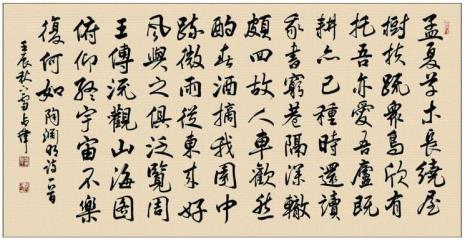 孟夏草木長繞屋
樹扶疏衆鳥欣有
托吾亦愛吾廬既
耕亦已種時還讀
我書窮巷隔深轍
頗回故人車歡然
酌春酒摘我園中
蔬微雨從東來好
風與之俱泛覽周
王傳流觀山海圖
俯仰終宇宙不樂
復何如 陶淵明詩一首
壬辰秋